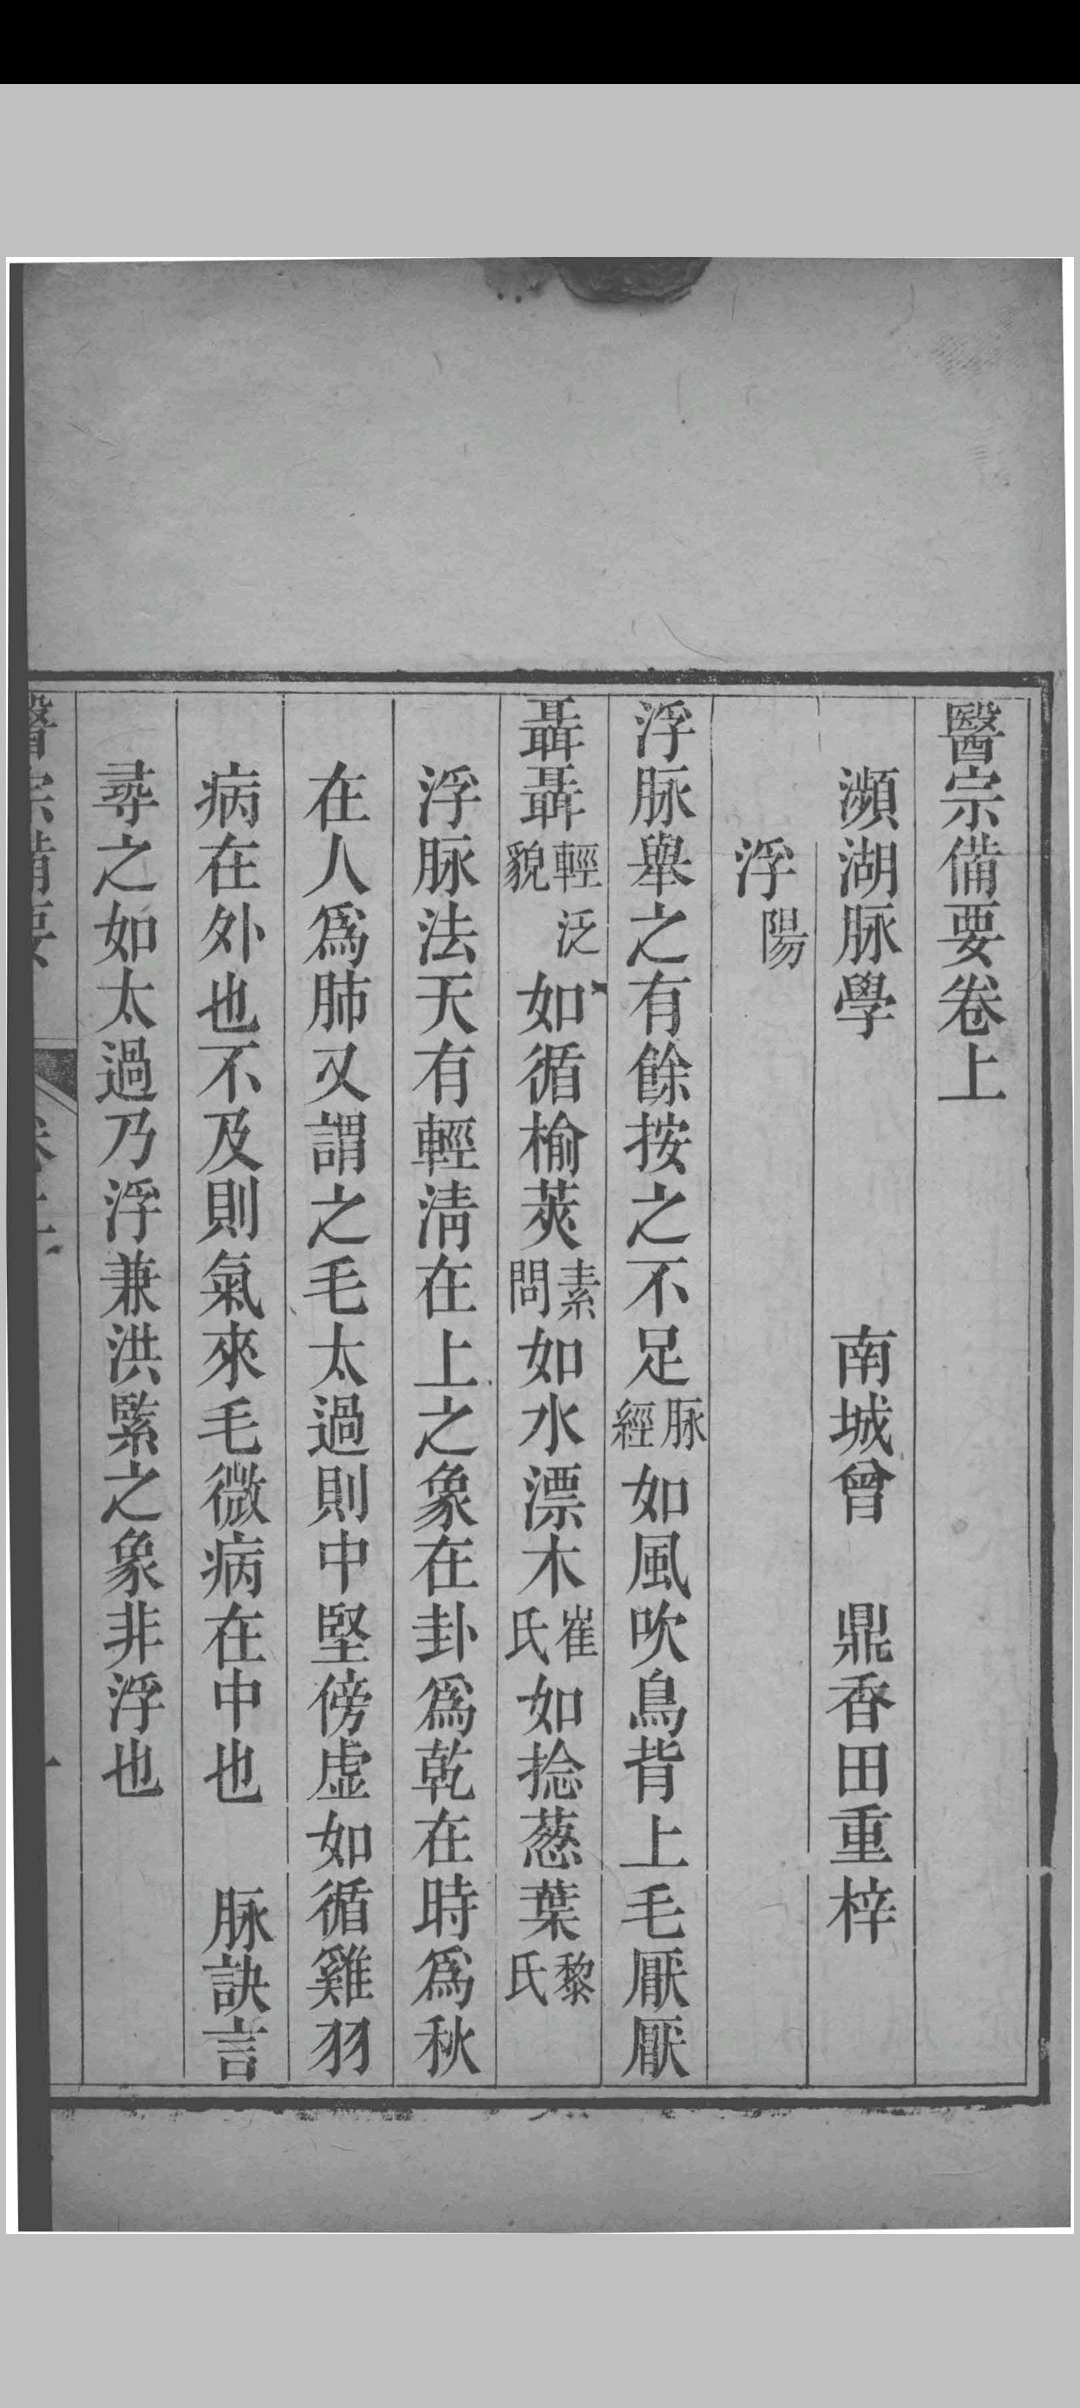 醫宗備要卷上
瀕湖脉學 南城曾 鼎香田重梓
浮陽
浮脉舉之有餘按之不足脉經如風吹鳥背上毛厭厭
聶聶輕泛貌如循榆莢素問如水漂木崔氏如捻葱葉黎氏
浮脉法天有輕淸在上之象在卦爲乾在時爲秋
在人爲肺又謂之毛太過則中堅傍虛如循雞羽
病在外也不及則氣來毛微病在中也 脉訣言
尋之如太過乃浮兼洪緊之象非浮也
醫宗備要 卷上 一